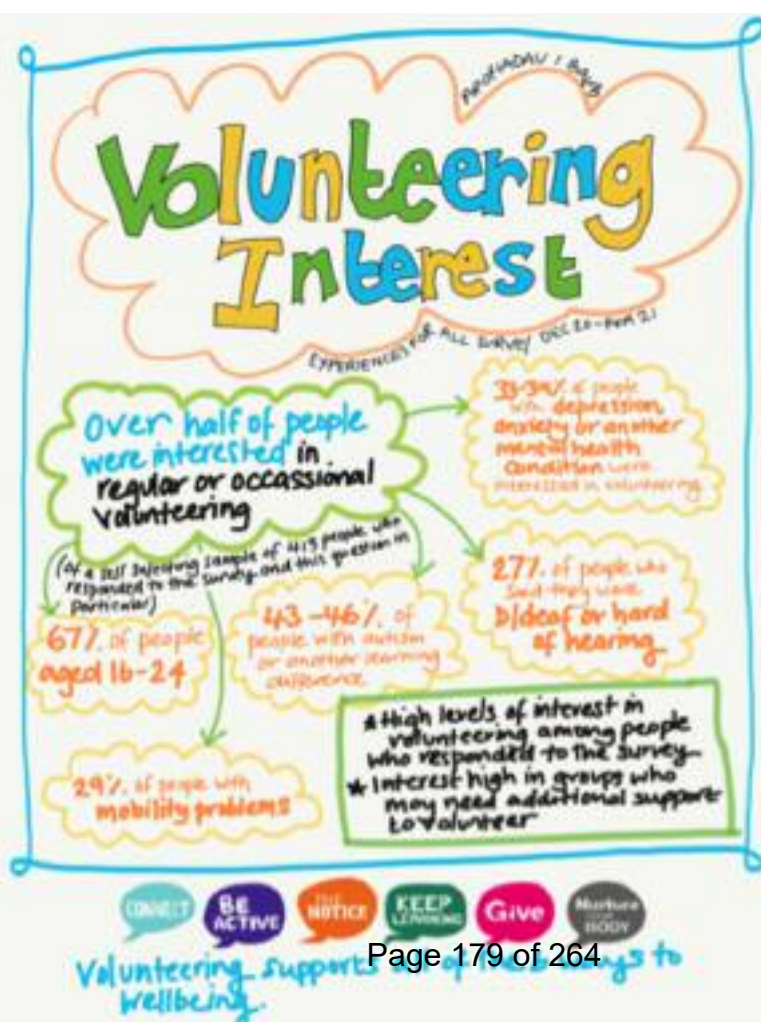 Volunteering
Interest
EXPERIENCES FOR ALL SURVEY DEC 20-
Over half of people
were interested in
regular or occassional
volunteering
(Of a self selecting sample of 413 people who
responded to the survey and this question in
particular)
of people
with depression,
anxiety or another
mental health
condition were
interested in volunteering
27% of people who
said they were
D/deaf or hard
of hearing
43-46% of
people with autism
or another learning
difference
67% of people
aged 16-24
29% of people with
mobility problems
*High levels of interest in
volunteering among people
who responded to the survey
*Interest high in groups who
may need additional support
to volunteer
CONNECT
BE
ACTIVE
NOTICE
KEEP
LEARNING
Give
Nurture
BODY
Page 179 of 264
Volunteering supports all of these ways to
wellbeing.